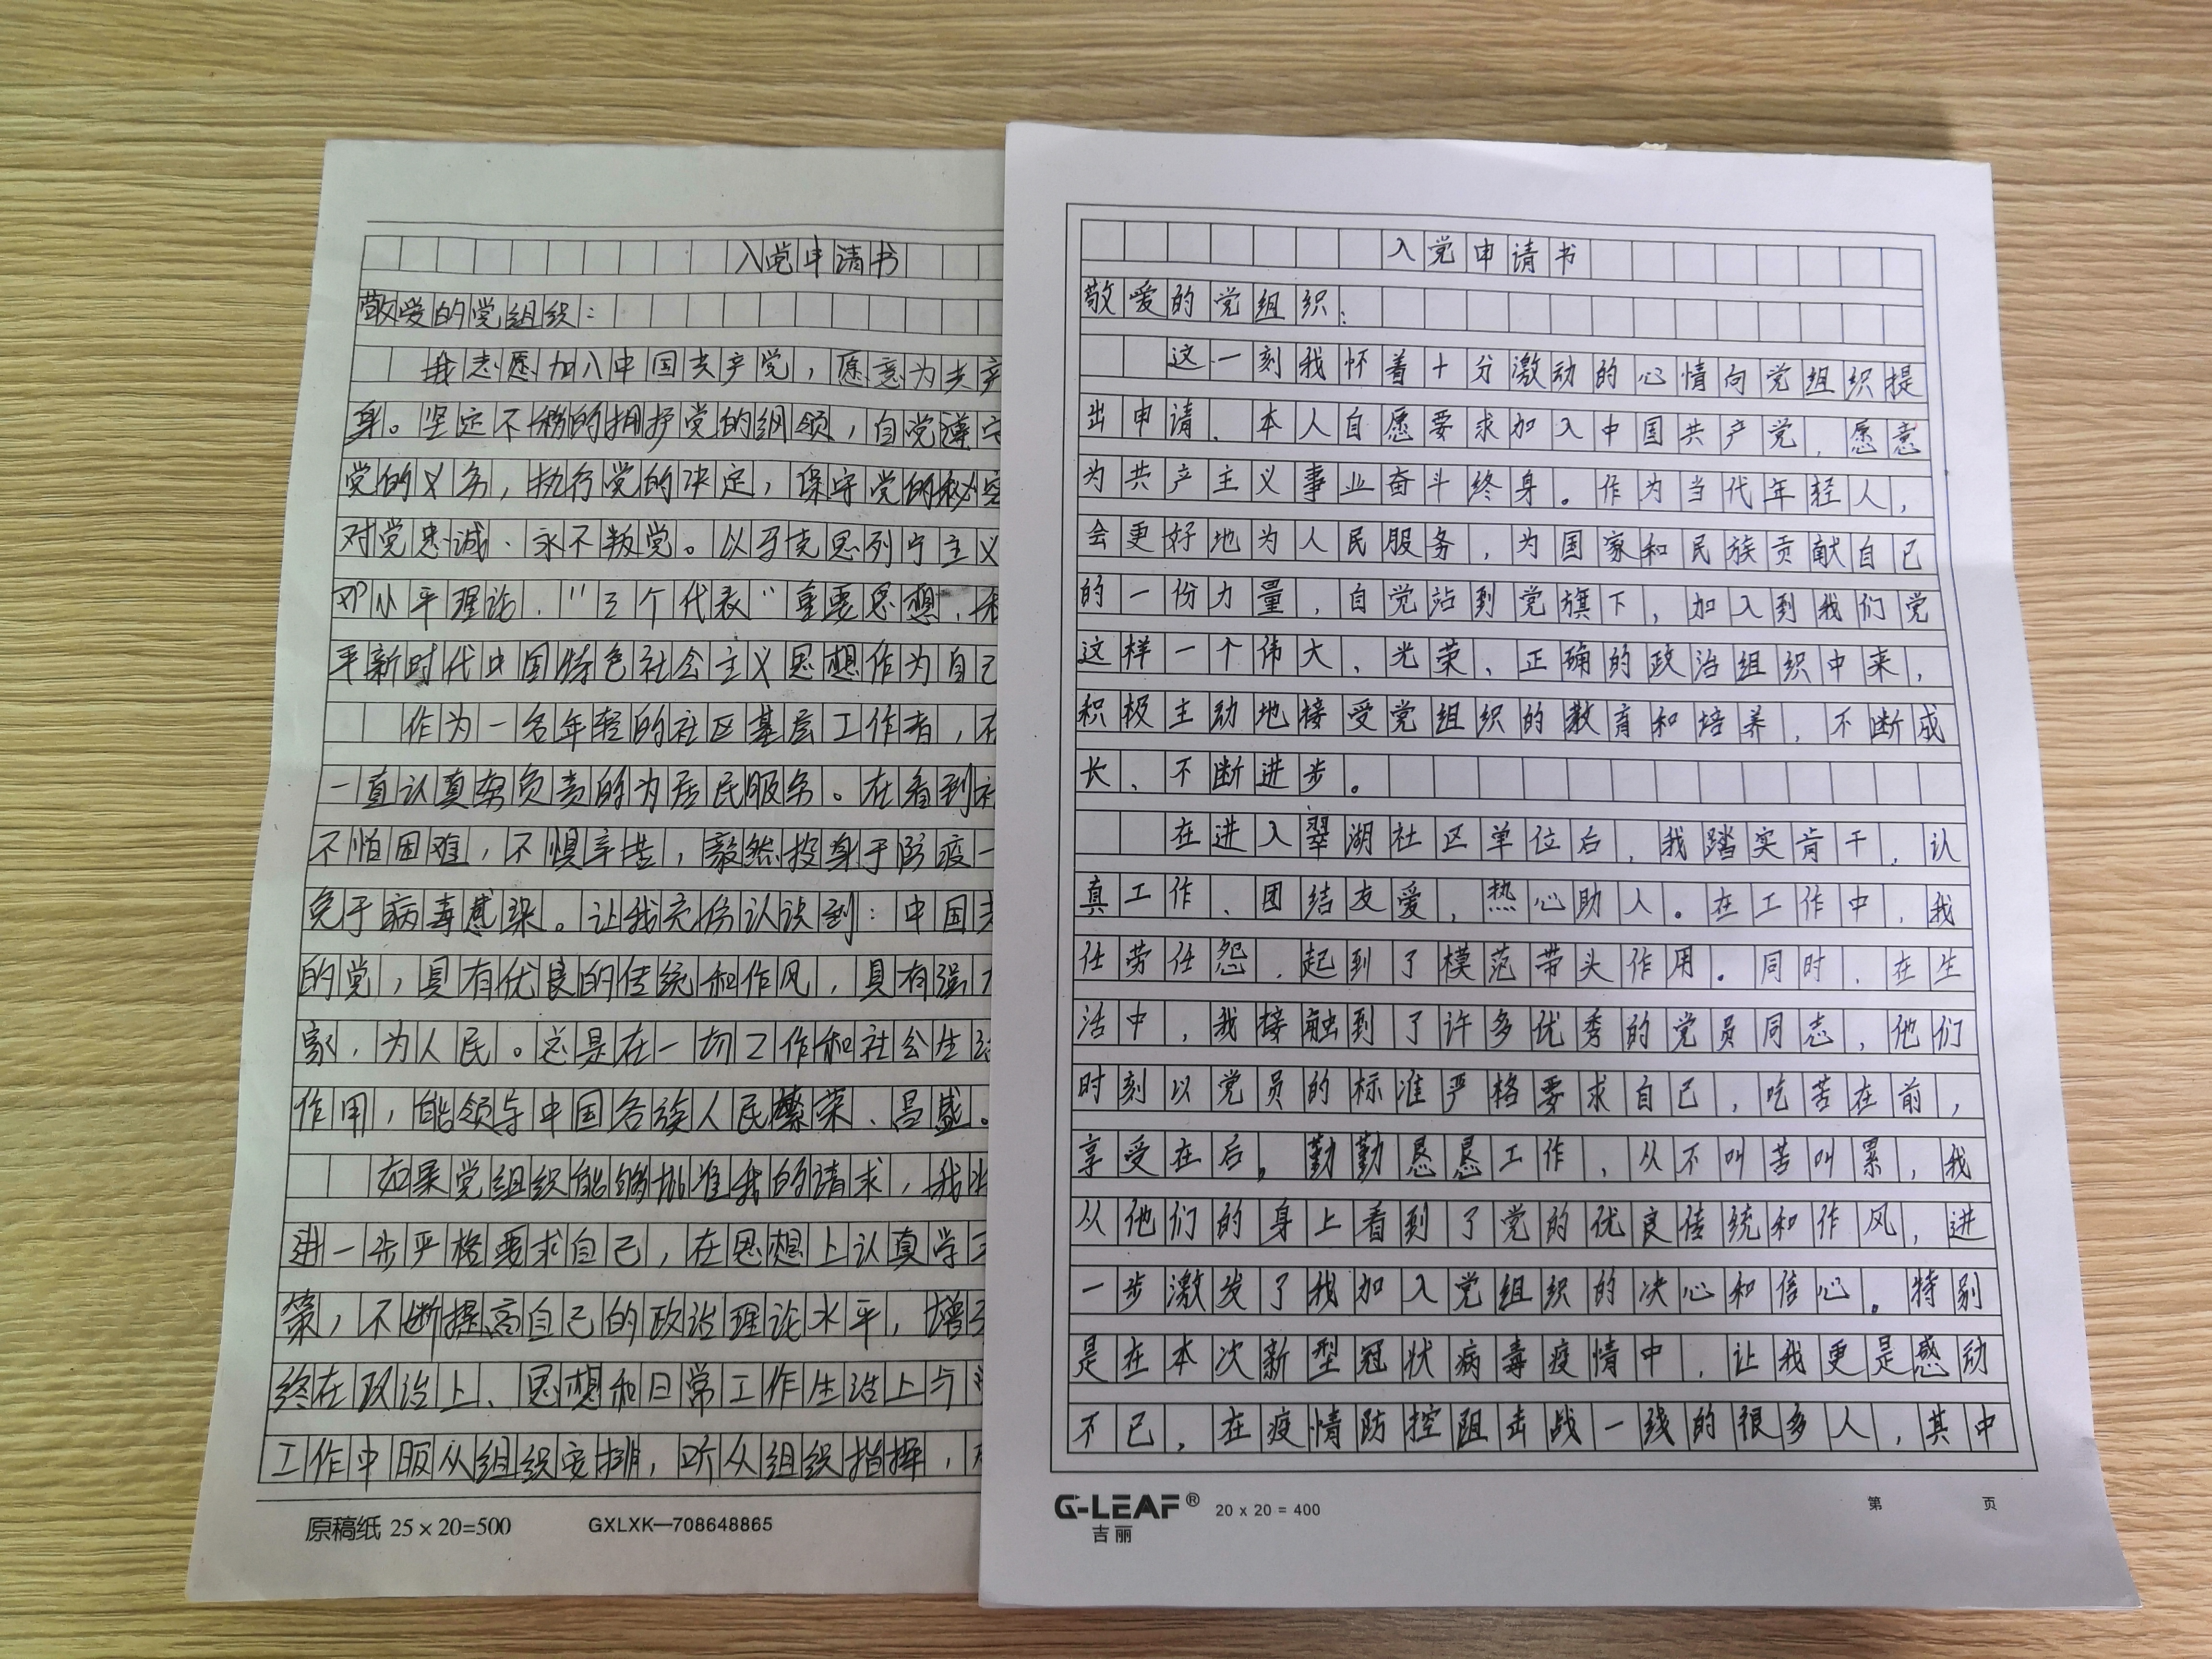 入党申请书
敬爱的党组织：
我志愿加入中国共产党，愿意为共产
身。坚定不移的拥护党的纲领，自觉遵守
党的义务，执行党的决定，保守党的秘密
对党忠诚、永不叛党。以马克思列宁主义
邓小平理论、“三个代表”重要思想、
平新时代中国特色社会主义思想作为自己
作为一名年轻的社区基层工作者，在
一直认真努负责的为居民服务。在看到
不怕困难，不惧辛苦，毅然投身于防疫一
免于病毒感染。让我充份认识到：中国共
的党，具有优良的传统和作风，具有强
家，为人民。总是在一切工作和社会生活
作用，能领导中国各族人民繁荣、昌盛。
如果党组织能够批准我的请求，我
进一步严格要求自己，在思想上认真学习
策，不断提高自己的政治理论水平，增
终在政治上、思想和日常工作生活上与
工作中服从组织安排，听从组织指挥，
原稿纸 25×20=500 GXLXK—708648865
入党申请书
敬爱的党组织：
这一刻我怀着十分激动的心情向党组织提
出申请、本人自愿要求加入中国共产党，愿意
为共产主义事业奋斗终身。作为当代年轻人，
会更好地为人民服务，为国家和民族贡献自己
的一份力量，自觉站到党旗下，加入到我们党
这样一个伟大、光荣、正确的政治组织中来，
积极主动地接受党组织的教育和培养，不断成
长、不断进步。
在进入翠湖社区单位后，我踏实肯干，认
真工作、团结友爱，热心助人。在工作中，我
任劳任怨，起到了模范带头作用。同时，在生
活中，我接触到了许多优秀的党员同志，他们
时刻以党员的标准严格要求自己，吃苦在前，
享受在后，勤勤恳恳工作，从不叫苦叫累，我
从他们的身上看到了党的优良传统和作风，进
一步激发了我加入党组织的决心和信心。特别
是在本次新型冠状病毒疫情中，让我更是感动
不已，在疫情防控阻击战一线的很多人，其中
G-LEAF® 20 x 20 = 400 第 页
吉丽